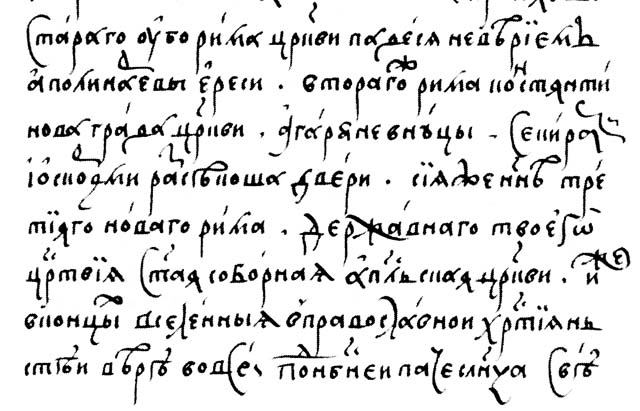 Стараго ѹбо рима цр҃кви падесѧ невѣрїемъ
аполинаевы ереси . втораго рима констѧнти
нова града цр҃кви . агарѧне внѹцы . Секира
ї ѻскордми разсѣкоша двери . сїѧ же н҃нѣ тре
тїѧго новаго рима . державнаго твоего
црⷭ҇твїѧ ст҃аѧ соборнаѧ апⷭ҇льскаѧ цр҃кви . иже
в концы вселенныѧ в православнои хрⷭ҇тїѧнь
стѣи вѣрѣ во всеи поднбⷭ҇неи паче слн҃ца свѣ